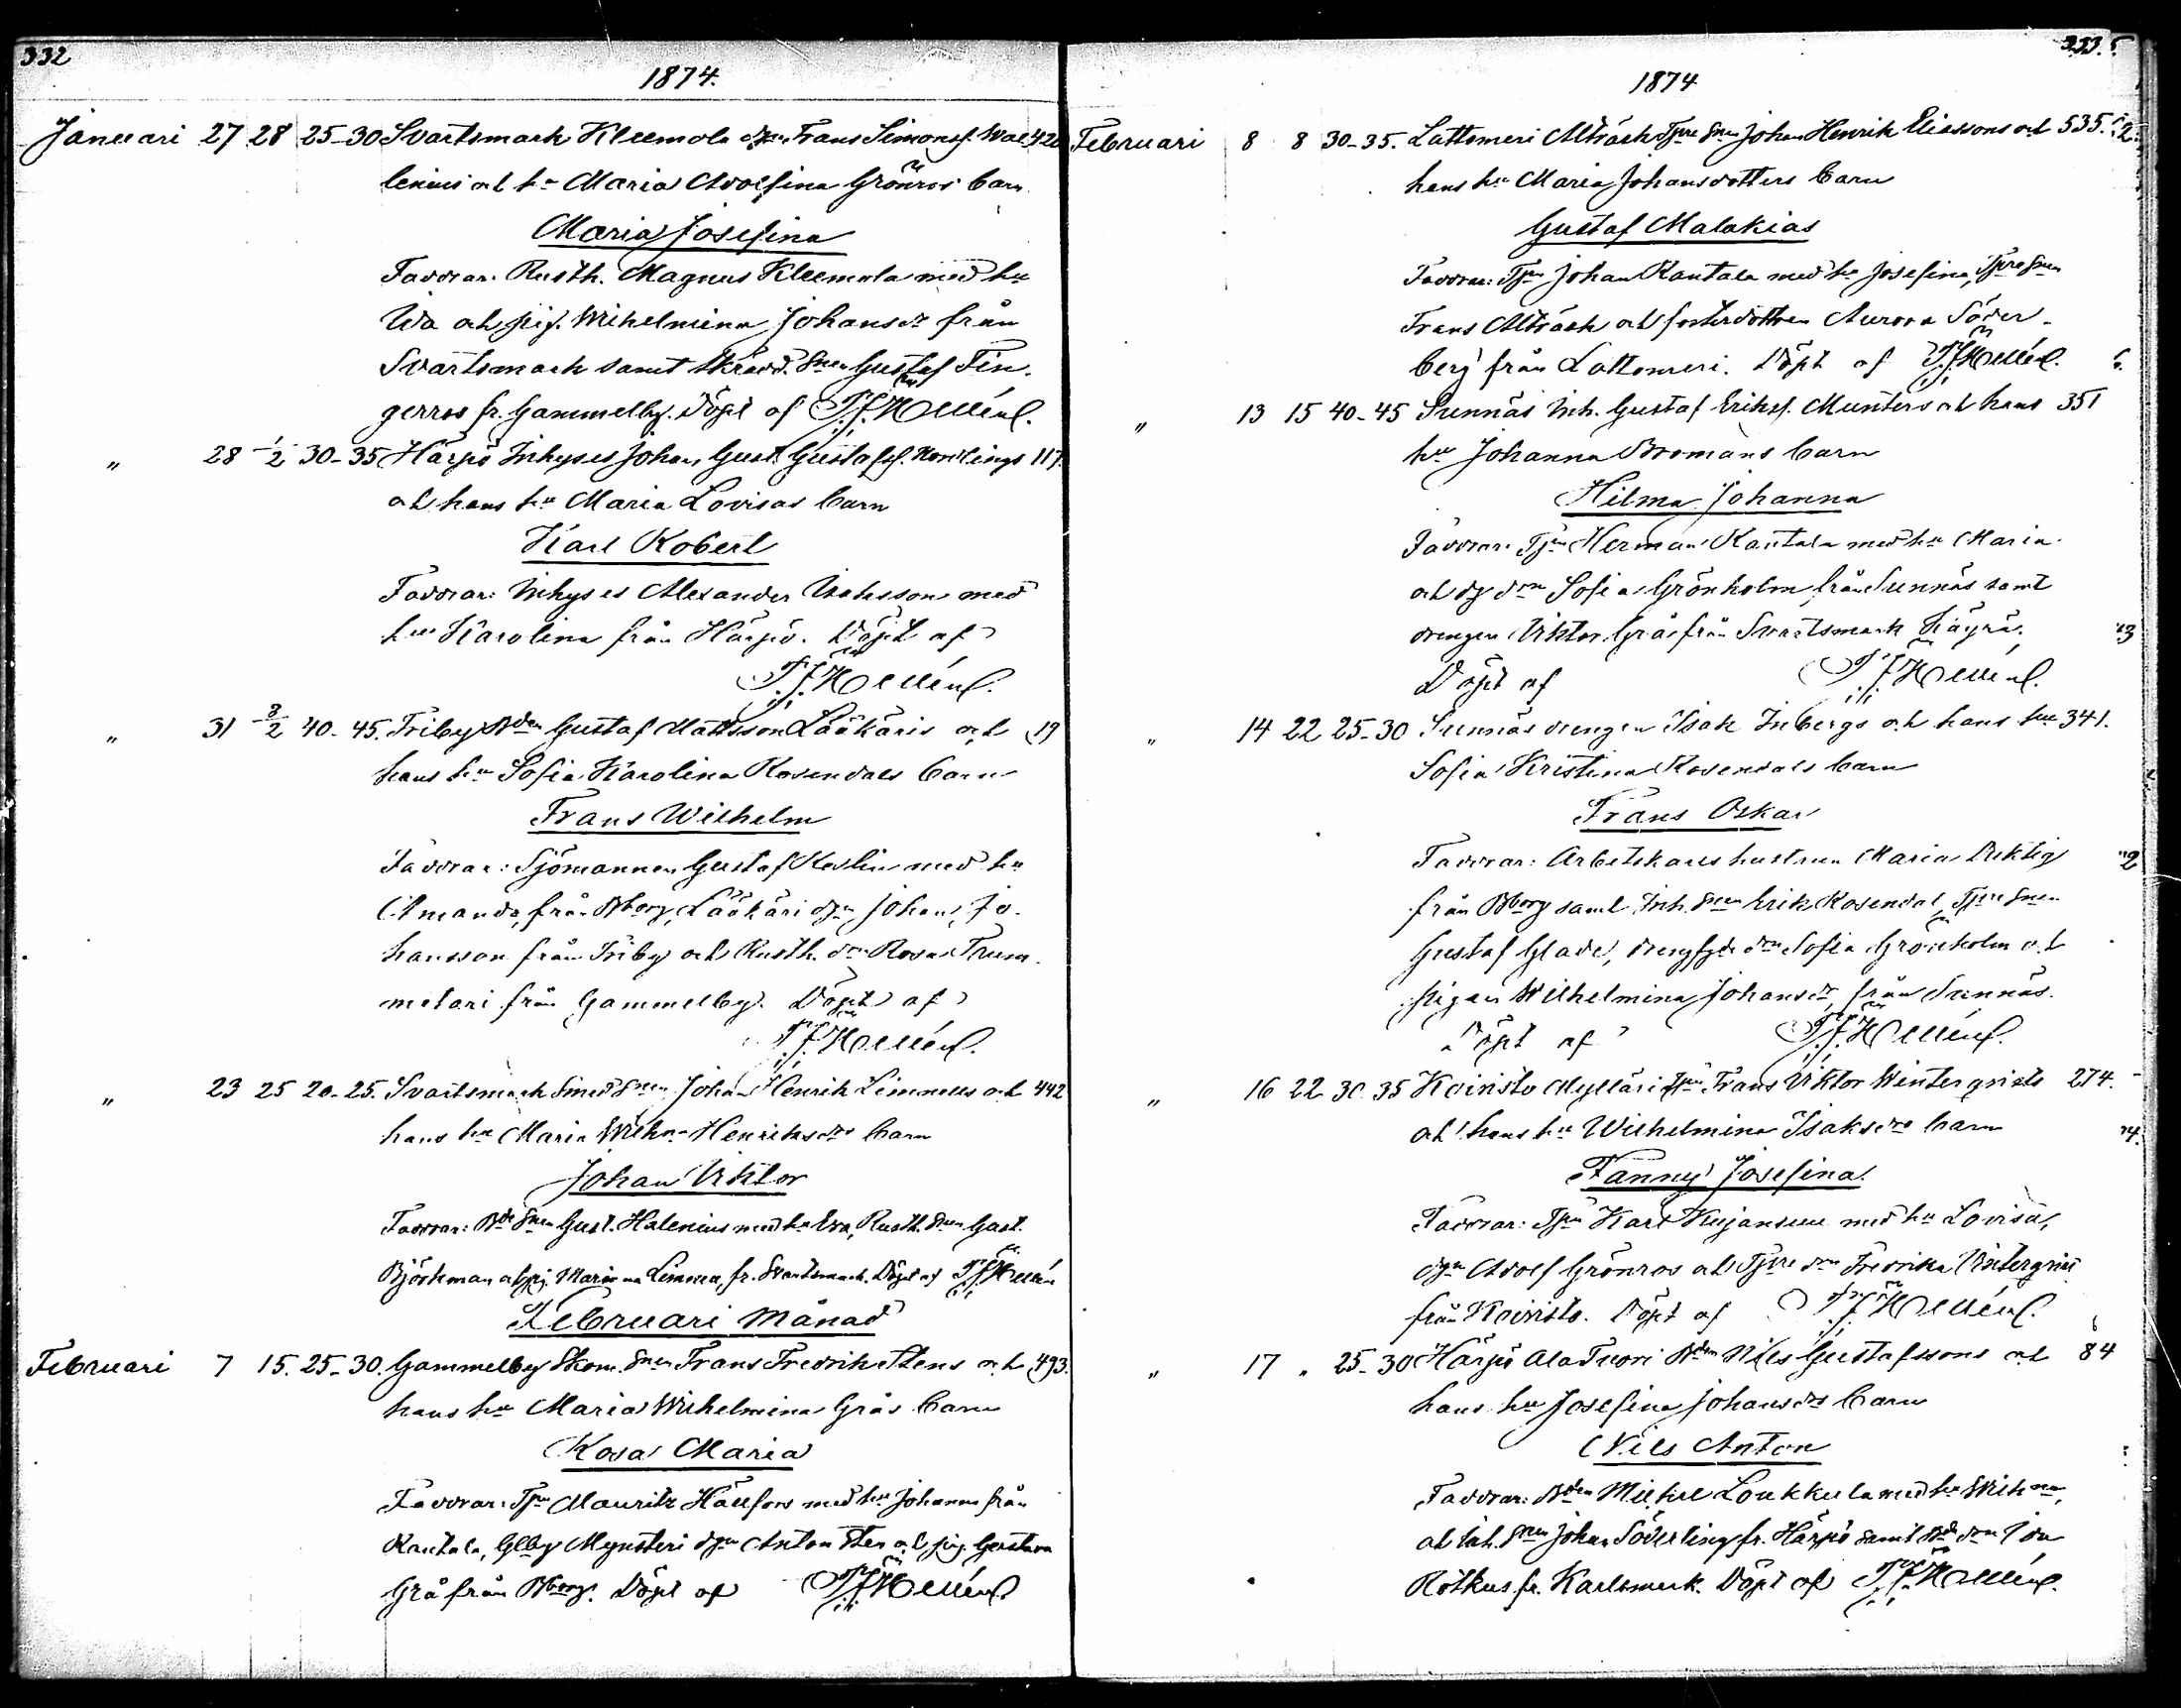 332
1874.
Januari 27 28 25-30 Svartsmark Kleemola Frans Simonss. Wal-
lenius och hu Maria Adolfina Grönros barn
Maria Josefina
Faddrar: Rusth. Magnus Kleemola med hu
Ida och pig. Wilhelmina Johansdr från
Svartsmark samt skrädd. Snen Gustaf Fin-
gerros fr. Gammelby. Döpt af T.J. Hellén.
" 28 1/2 30-35 Härpö Inhyses Johan Gust. Gustafss. 117.
och hans hu Maria Lovisas barn
Karl Robert
Faddrar: Inhyses Alexander Isaksson med
hu Karolina från Härpö. Döpt af
T.J. Hellén.
" 31 8/2 40-45. Friby Bden Gustaf Mattsson Lääkäris och 19
hans hu Sofia Karolina Rosendals barn
Frans Wilhelm
Faddrar: Sjömannen Gustaf Hedlin med hu
Amanda från Bborg, Lääkäri Johan Jo-
hansson från Friby och Rusth. drn Rosa Trum-
metari från Gammelby. Döpt af
T.J. Hellén.
" 23 25 20-25. Svartsmark Smed Snen Johan Henrik Limnells och 442
hans hu Maria Wilhna Henriksdrs barn
Johan Viktor
Faddrar: Bde Snen Gust. Halenius med hu Eva, Rusth. Snen Gust.
Björkman och pig. Maria Limnea, fr. Svartsmark. Döpt af T.J. Hellén
Februari Månad
Februari 7 15. 25-30. Gammelby Skom. Snen Frans Fredrik Stens och 493.
hans hu Maria Wilhelmina Grås barn
Rosa Maria
Faddrar: Tpn Mauritz Hällfors med hu Johanna från
Rantala, Glby Mynsteri Anton Sten och pig. Gustava
Grå från Bborg. Döpt af T.J. Hellén
333.
1874
Februari 8 8 30-35. Lattomeri Altråsk Tpre Snen Johan Henrik Eliassons och 535.
hans hu Maria Johansdotters barn
Gustaf Malakias
Faddrar: Tpn Johan Rantala med hu Josefina, Tpre Snen
Frans Altråsk och fosterdottren Aurora Söder-
berg från Lattomeri. Döpt af T.J. Hellén.
" 13 15 40-45 Sunnäs Inh. Gustaf Erikss. Munters och hans 351
hu Johanna Bromans barn
Hilma Johanna
Faddrar: Tpn Herman Rantala med hu Maria
och drn Sofia Grönholm från Sunnäs samt
drengen Viktor Grå från Svartsmark Käyrä.
Döpt af T.J. Hellén.
" 14 22 25-30 Sunnäs drengen Isak Inbergs och hans hu 341.
Sofia Kristina Rosendals barn
Frans Oskar
Faddrar: Arbetskarls hustrun Maria Duktig
från Bborg samt Inh. Snen Erik Rosendal, Tpre Snen
Gustaf Glader, drn Sofia Grönholm och
pigan Wilhelmina Johansdr, från Sunnäs.
Döpt af T.J. Hellén.
" 16 22 30-35 Koivisto Mylläri Tpn Frans Viktor Winterqvists 274.
och hans hu Wilhelmina Isaksdrs barn
Fanny Josefina
Faddrar: Tpn Karl Kujansuu med hu Lovisa,
Adolf Grönros och Tpre drn Fredrika Vinterqvist
från Koivisto. Döpt af T.J. Hellén.
" 17 " 25-30 Härpö Ala Tuori Bden Nils Gustafssons och 84
hans hu Josefina Johansdrs barn
Nils Anton
Faddrar: Bden Mickel Loukkula med hu Wilhna,
och Inh. Snen Johan Söderling fr. Härpö samt Bde drn Ida
Rotkus fr. Karlsmark. Döpt af T.J. Hellén.